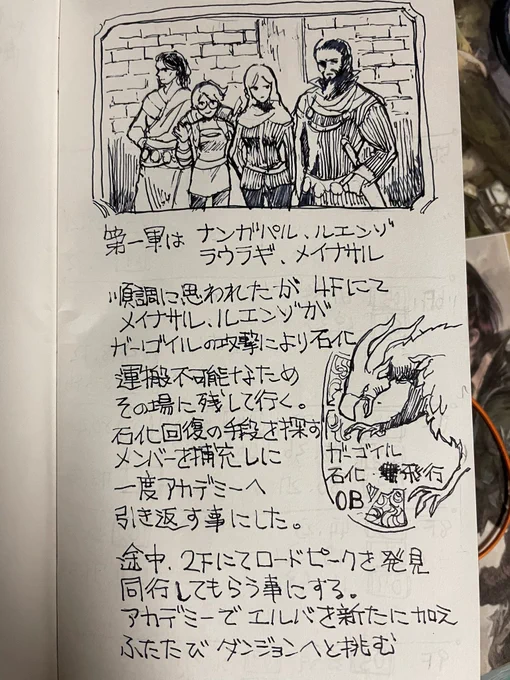 第一軍は ナンガパル、ルエンゾ
ラウラギ、メイナサル
順調に思われたが 4Fにて
メイナサル、ルエンゾが
ガーゴイルの攻撃により石化
運搬不可能なため
その場に残して行く。
石化回復の手段を探す
メンバーを補充しに
一度アカデミーへ
引き返す事にした。
ガーゴイル
石化・飛行
OB
途中、2Fにてロードピークを発見
同行してもらう事にする。
アカデミーでエルバを新たに加え
ふたたび ダンジョンへと挑む